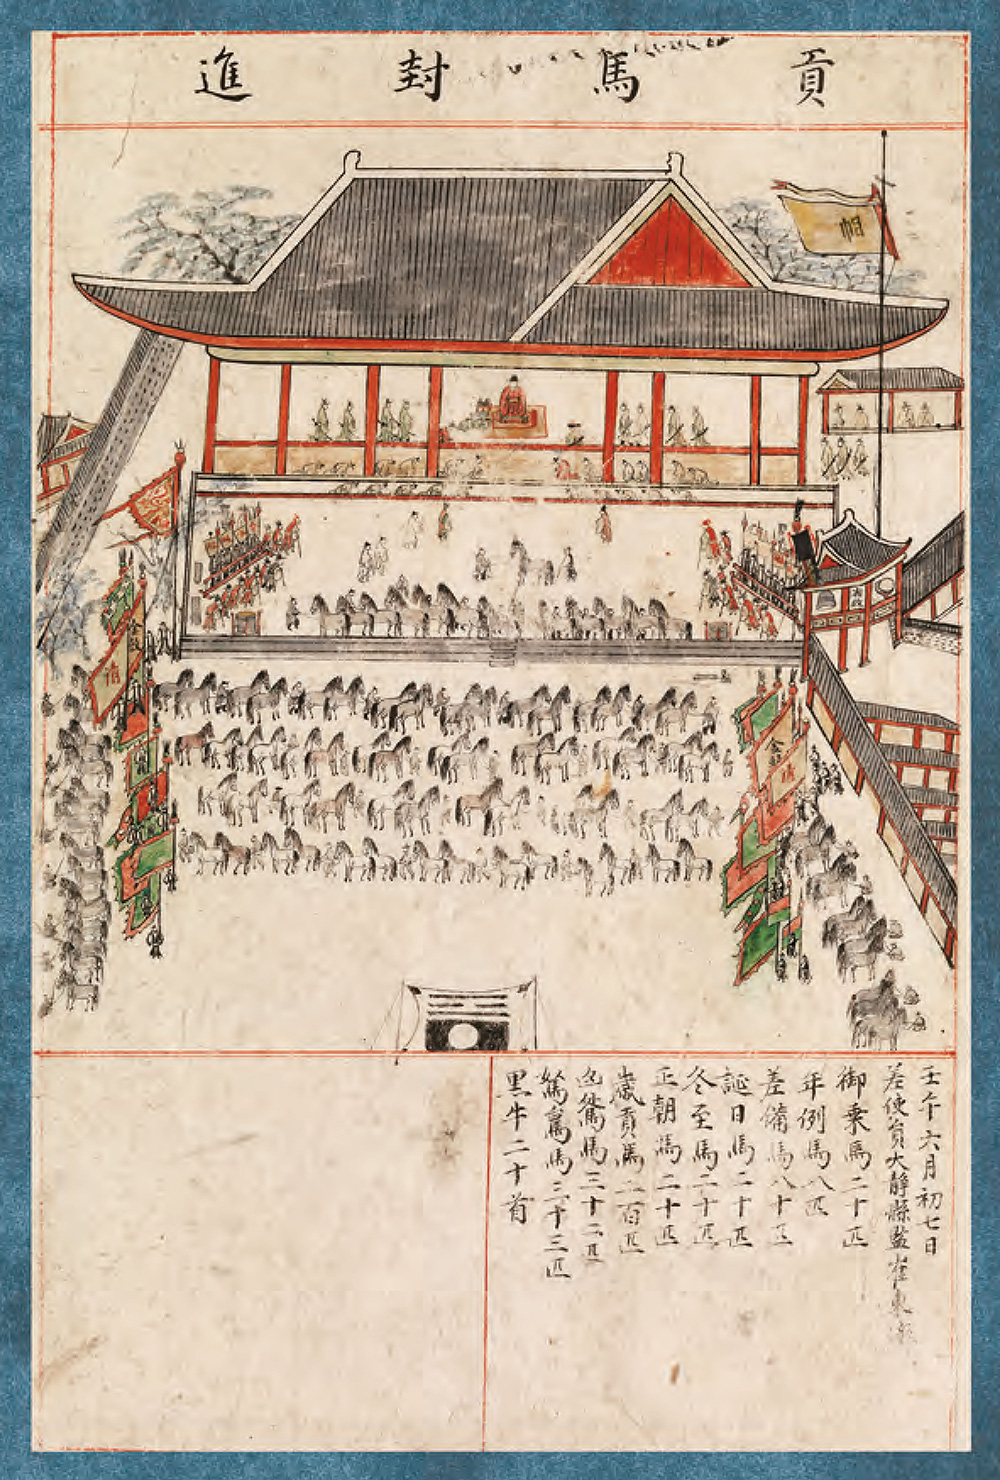 貢馬封進
帥
壬午六月初七日
差使員大靜縣監崔東
御乘馬二十匹
年例馬八匹
差備馬八十匹
誕日馬二十匹
冬至馬二十匹
正朝馬二十匹
歲貢馬二百匹
凶咎馬三十二匹
駑駘馬三十三匹
黑牛二十首